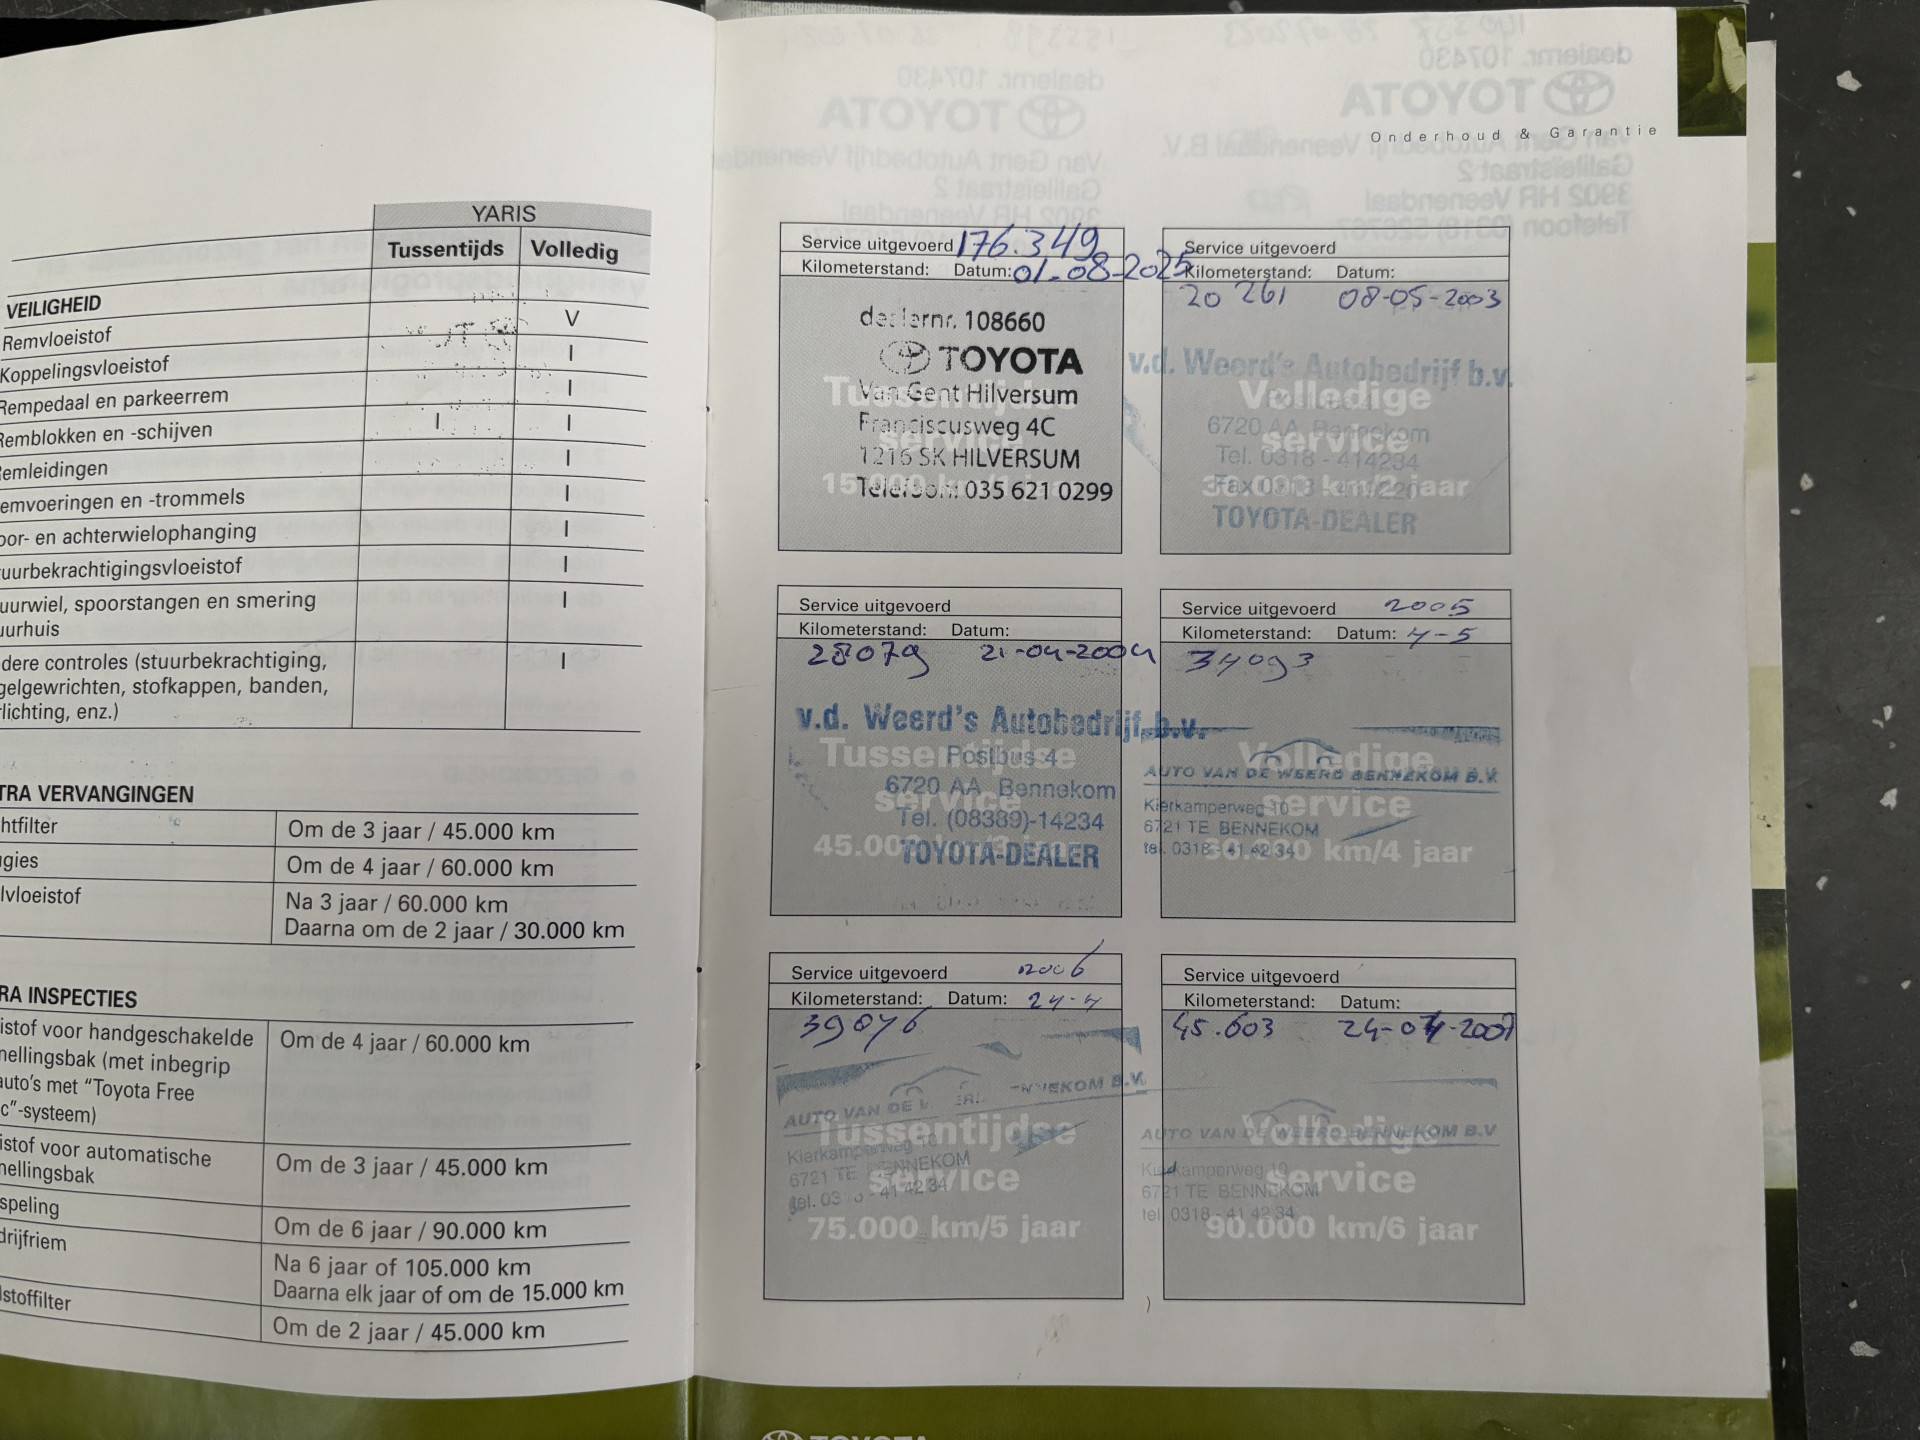 YARIS
Tussentijds Volledig
VEILIGHEID
Remvloeistof V
Koppelingsvloeistof I
Rempedaal en parkeerrem I
Remblokken en -schijven I I
emleidingen I
emvoeringen en -trommels I
oor- en achterwielophanging I
uurbekrachtigingsvloeistof I
uurwiel, spoorstangen en smering I
uurhuis
dere controles (stuurbekrachtiging, I
gelgewrichten, stofkappen, banden,
lichting, enz.)
TRA VERVANGINGEN
htfilter Om de 3 jaar / 45.000 km
gies Om de 4 jaar / 60.000 km
lvloeistof Na 3 jaar / 60.000 km
Daarna om de 2 jaar / 30.000 km
RA INSPECTIES
istof voor handgeschakelde Om de 4 jaar / 60.000 km
nellingsbak (met inbegrip
auto's met "Toyota Free
c"-systeem)
istof voor automatische Om de 3 jaar / 45.000 km
nellingsbak
speling Om de 6 jaar / 90.000 km
drijfriem Na 6 jaar of 105.000 km
Daarna elk jaar of om de 15.000 km
lstoffilter Om de 2 jaar / 45.000 km
Onderhoud & Garantie
Service uitgevoerd 176.349
Kilometerstand: Datum: 01-08-2025
dealernr. 108660
TOYOTA
Van Gent Hilversum
Tussentijdse
Franciscusweg 4C
service
1216 SK HILVERSUM
Telefoon: 035 621 0299
Service uitgevoerd
Kilometerstand: Datum:
20 261 08-05-2003
v.d. Weerd's Autobedrijf b.v.
Volledige
6720 AA Bennekom
service
Tel. 0318 - 414234
30.000 km/2 jaar
TOYOTA-DEALER
Service uitgevoerd
Kilometerstand: Datum:
28079 21-04-2004
v.d. Weerd's Autobedrijf b.v.
Tussentijdse
Postbus 4
6720 AA Bennekom
service
Tel. (08389)-14234
45.000 km/3 jaar
TOYOTA-DEALER
Service uitgevoerd 2005
Kilometerstand: Datum: 4-5
34093
Volledige
AUTO VAN DE WEERD BENNEKOM B.V.
Kierkamperweg 10
service
6721 TE BENNEKOM
tel. 0318 - 41 42 34
60.000 km/4 jaar
Service uitgevoerd 2006
Kilometerstand: Datum: 24-4
39076
AUTO VAN DE WEERD BENNEKOM B.V.
Tussentijdse
Kierkamperweg 10
6721 TE BENNEKOM
service
tel. 0318 - 41 42 34
75.000 km/5 jaar
Service uitgevoerd
Kilometerstand: Datum:
45.603 24-04-2007
AUTO VAN DE WEERD BENNEKOM B.V
Volledige
Kierkamperweg 10
service
6721 TE BENNEKOM
tel. 0318 - 41 42 34
90.000 km/6 jaar
TOYOTA